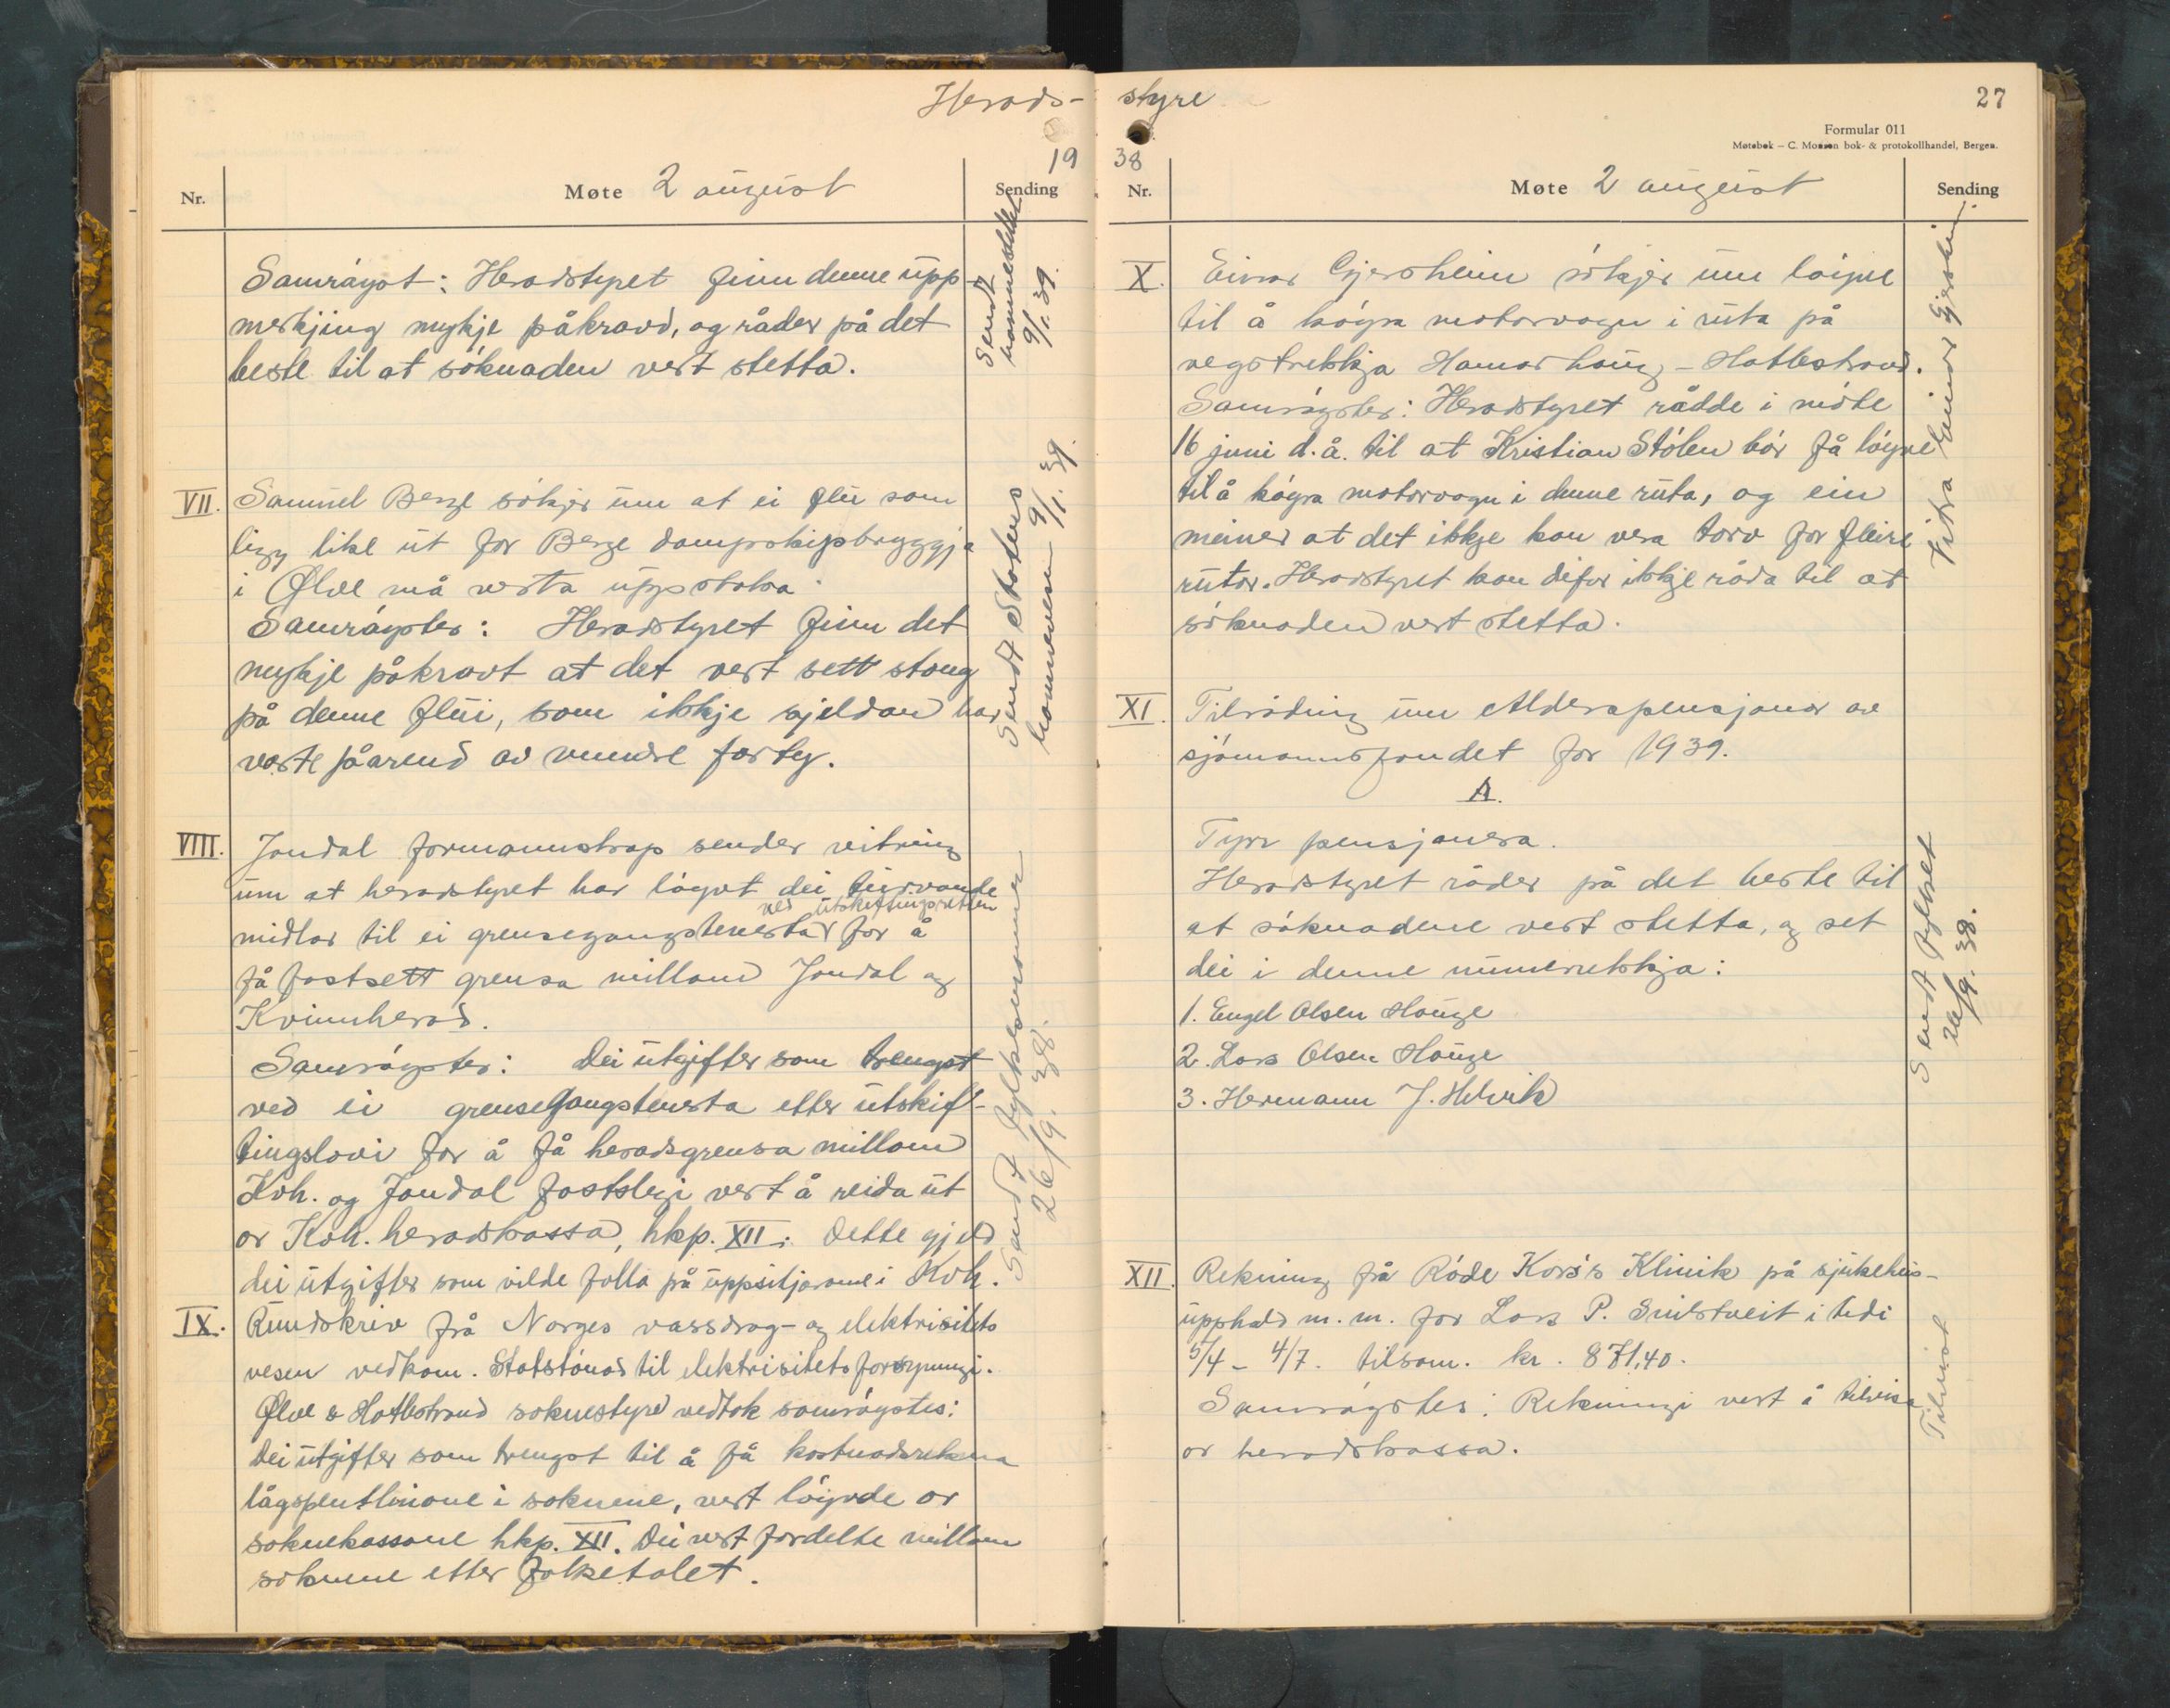 Herads-
19
Nr.
Møte 2 august
Sending
Samrøyst: Heradstyret finn denne upp
merkjing mykje påkravd, og råder på det
beste til at søknaden vert stetta.
Sendt
9/1. 39.
VII.
Samuel Berge søkjer um at ei flu som
ligg like ut for Berge dampskipsbryggja
i Ølve må verta uppstaka.
Samrøystes: Heradstyret finn det
mykje påkravt at det vert sett stong
på denne flui, som ikkje sjeldan har
vorte påarend av mindre farty.
Sendt Statens
havnevesen 9/1. 39.
VIII.
Jondal formannskap sender vitring
um at heradstyret har løyvt dei turvande
ved utskiftingsretten
midlar til ei grensegangstenesta for å
få fastsett grensa millom Jondal og
Kvinnherad.
Samrøystes: Dei utgifter som trengst
ved ei grensegangstenesta etter utskif-
tingslovi for å få heradsgrensa millom
Kvh. og Jondal fastslegi vert å reida ut
or Kvh. heradskassa, hkp. XII. Dette gjeld
dei utgifter som vilde falla på uppsitjarane i Kvh.
Sendt fylkesmannen
26/9. 38.
IX.
Rundskriv frå Norges vassdrag- og elektrisitets
vesen vedkom. Statstønad til elektrisitetsforsyningi.
Ølve & Hatlestrand soknestyre vedtok samrøystes:
Dei utgifter som trengst til å få kostnadsrekna
lågspentlinone i soknene, vert løyvde or
soknekassone hkp. XII. Dei vert fordelte millom
soknene etter folketalet.
styre
27
Formular 011
Møtebok – C. Monsen bok- & protokollhandel, Bergen.
38
Nr.
Møte 2 august
Sending
X.
Einar Gjersheim søkjer um løyve
til å køyra motorvogn i ruta på
vegstrekkja Hamarhaug - Hatlestrand.
Samrøystes: Heradstyret rådde i møte
16 juni d.å. til at Kristian Stølen bør få løyve
til å køyra motorvogn i denne ruta, og ein
meiner at det ikkje kan vera torv for fleire
rutor. Heradstyret kan difor ikkje råda til at
søknaden vert stetta.
Vitra Einar Gjersheim.
XI.
Tilråding um Alderspensjonar av
sjømannsfondet for 1939.
A.
Fyrr pensjonera.
Heradstyret råder på det beste til
at søknadene vert stetta, og set
dei i denne numerrekkja:
1. Engel Olsen Hauge
2. Lars Olsen Hauge
3. Hermann J. Helvik
Sendt fylket
26/9. 38.
XII.
Rekning frå Røde Kors's Klinik på sjukehus-
upphald m.m. for Lars P. Smistveit i tidi
5/4 - 4/7. tilsam. kr. 871,40.
Samrøystes: Rekningi vert å tilvisa
or heradskassa.
Tilvist